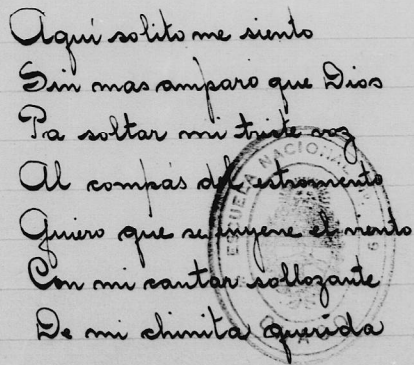 Aqui solito me siento
Sin mas amparo que Dios
Pa soltar mi triste voz
Al compás del estromento
Quiero que se inyene el viento
Con mi cantar sollozante
De mi chinita querida
ESCUELA NACIONAL